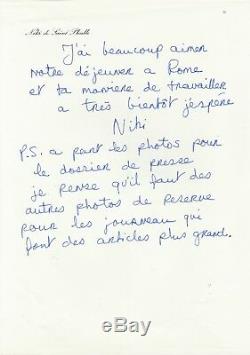 Niki de Saint Phalle
J'ai beaucoup aimer
notre déjeuner a Rome
et ta maniere de travailler
a très bientôt j'espère
Niki
P.S. a part les photos pour
le dossier de presse
je pense qu'il faut des
autres photos de reserve
pour les journeau qui
font des articles plus grand.
ebay